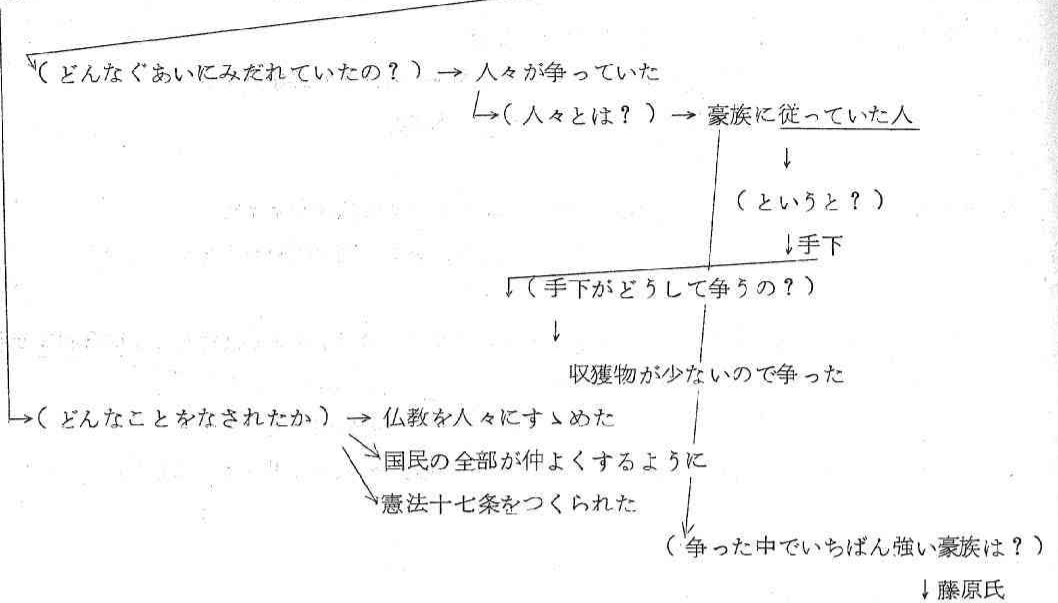 （どんなぐあいにみだれていたの？）→ 人々が争っていた
→（人々とは？）→ 豪族に従っていた人
↓
（というと？）
↓手下
（手下がどうして争うの？）
↓
収獲物が少ないので争った
→（どんなことをなされたか）→ 仏教を人々にすゝめた
国民の全部が仲よくするように
憲法十七条をつくられた
（争った中でいちばん強い豪族は？）
↓藤原氏